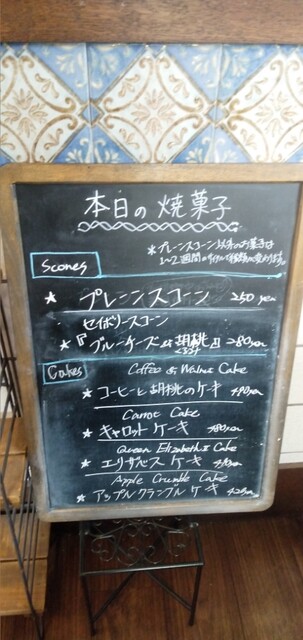 本日の焼菓子
*プレーンスコーン以外のお菓子は
1~2週間のサイクルで種類が変わります。
Scones
★ プレーンスコーン 250 yen
セイボリースコーン
★『ブルーチーズと胡桃』 280yen
くるみ
Cakes
Coffee & Walnut Cake
★ コーヒーと胡桃のケーキ 490yen
Carrot Cake
★ キャロットケーキ 480yen
Queen Elizabeth Cake
★ エリザベスケーキ
Apple Crumble Cake
★ アップルクランブルケーキ 420yen